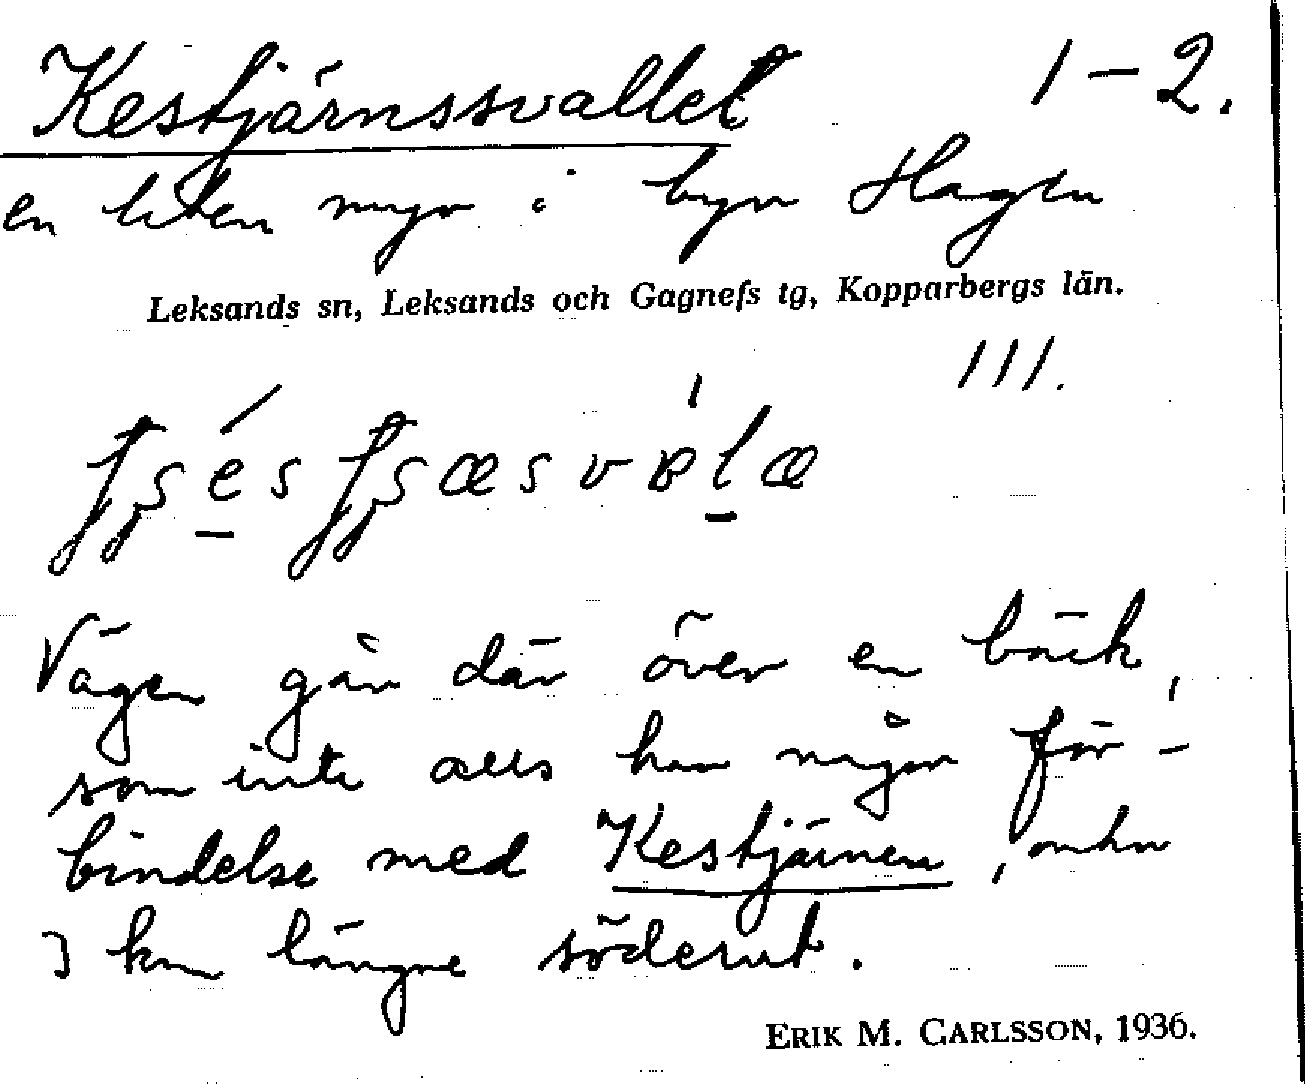 Kestjärnssvallet 1-2.
en liten myr i byn Hagen
Leksands sn, Leksands och Gagnefs tg, Kopparbergs län.
111.
Vägen går där över en bäck,
som inte alls har någon för-
bindelse med Kestjärnen,
3 km längre söderut.
ERIK M. CARLSSON, 1936.